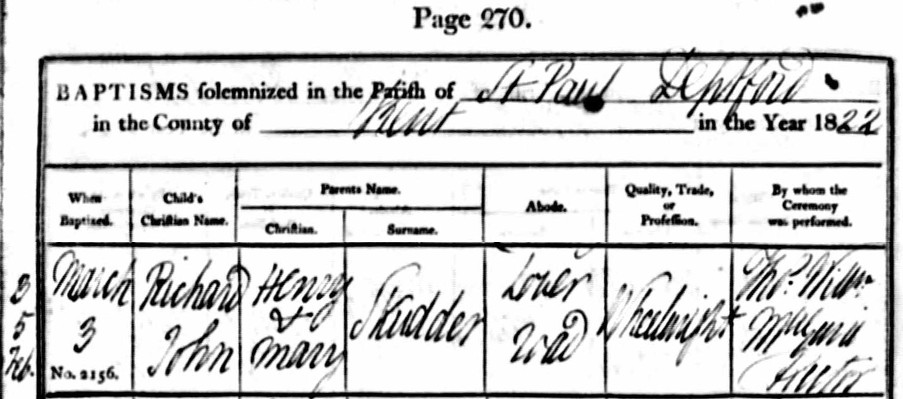 Page 270.
BAPTISMS solemnized in the Parish of St. Paul Deptford
in the County of Kent in the Year 1822
When Baptized.
Child's Christian Name.
Parents Name.
Christian.
Surname.
Abode.
Quality, Trade, or Profession.
By whom the Ceremony was performed.
March
3
No. 2156.
Richard
John
Henry
&
Mary
Skudder
Lower
Road
Wheelwright
Thos. Willm.
Rector
5
Feb.